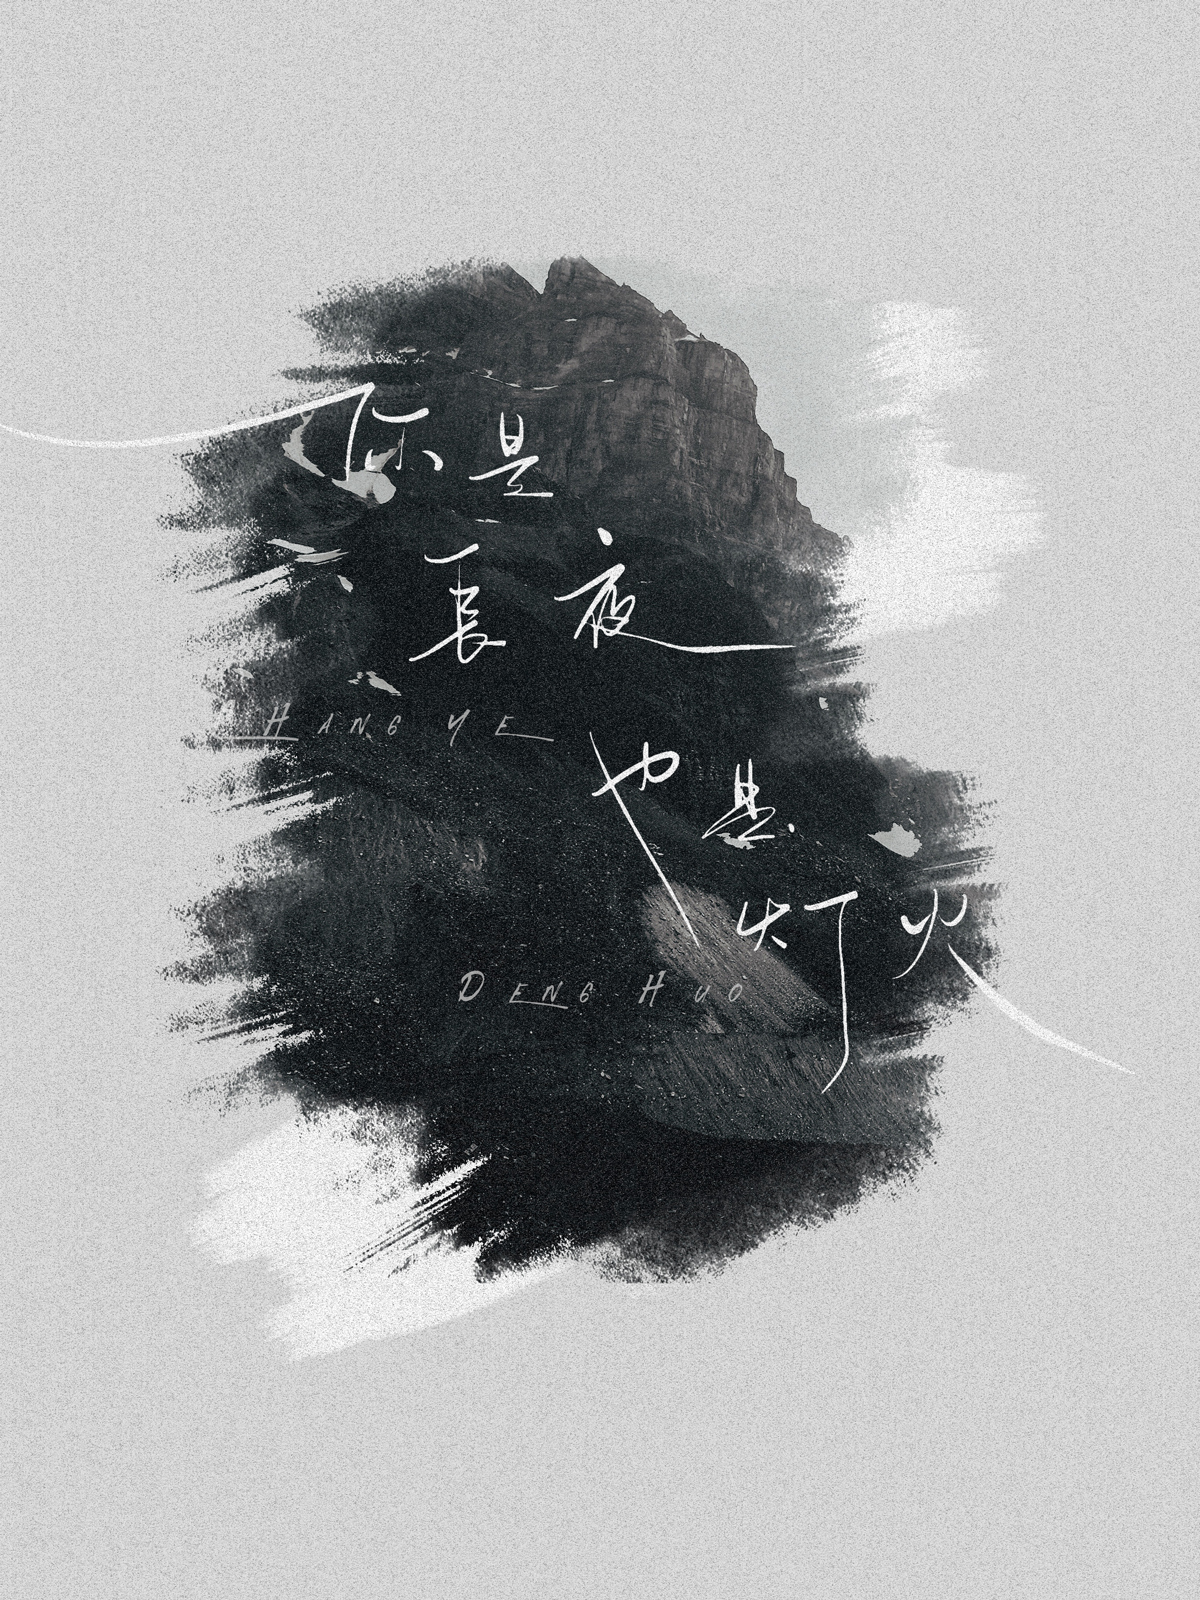 你是
長夜
HANG YE
也是
灯火
DENG HUO